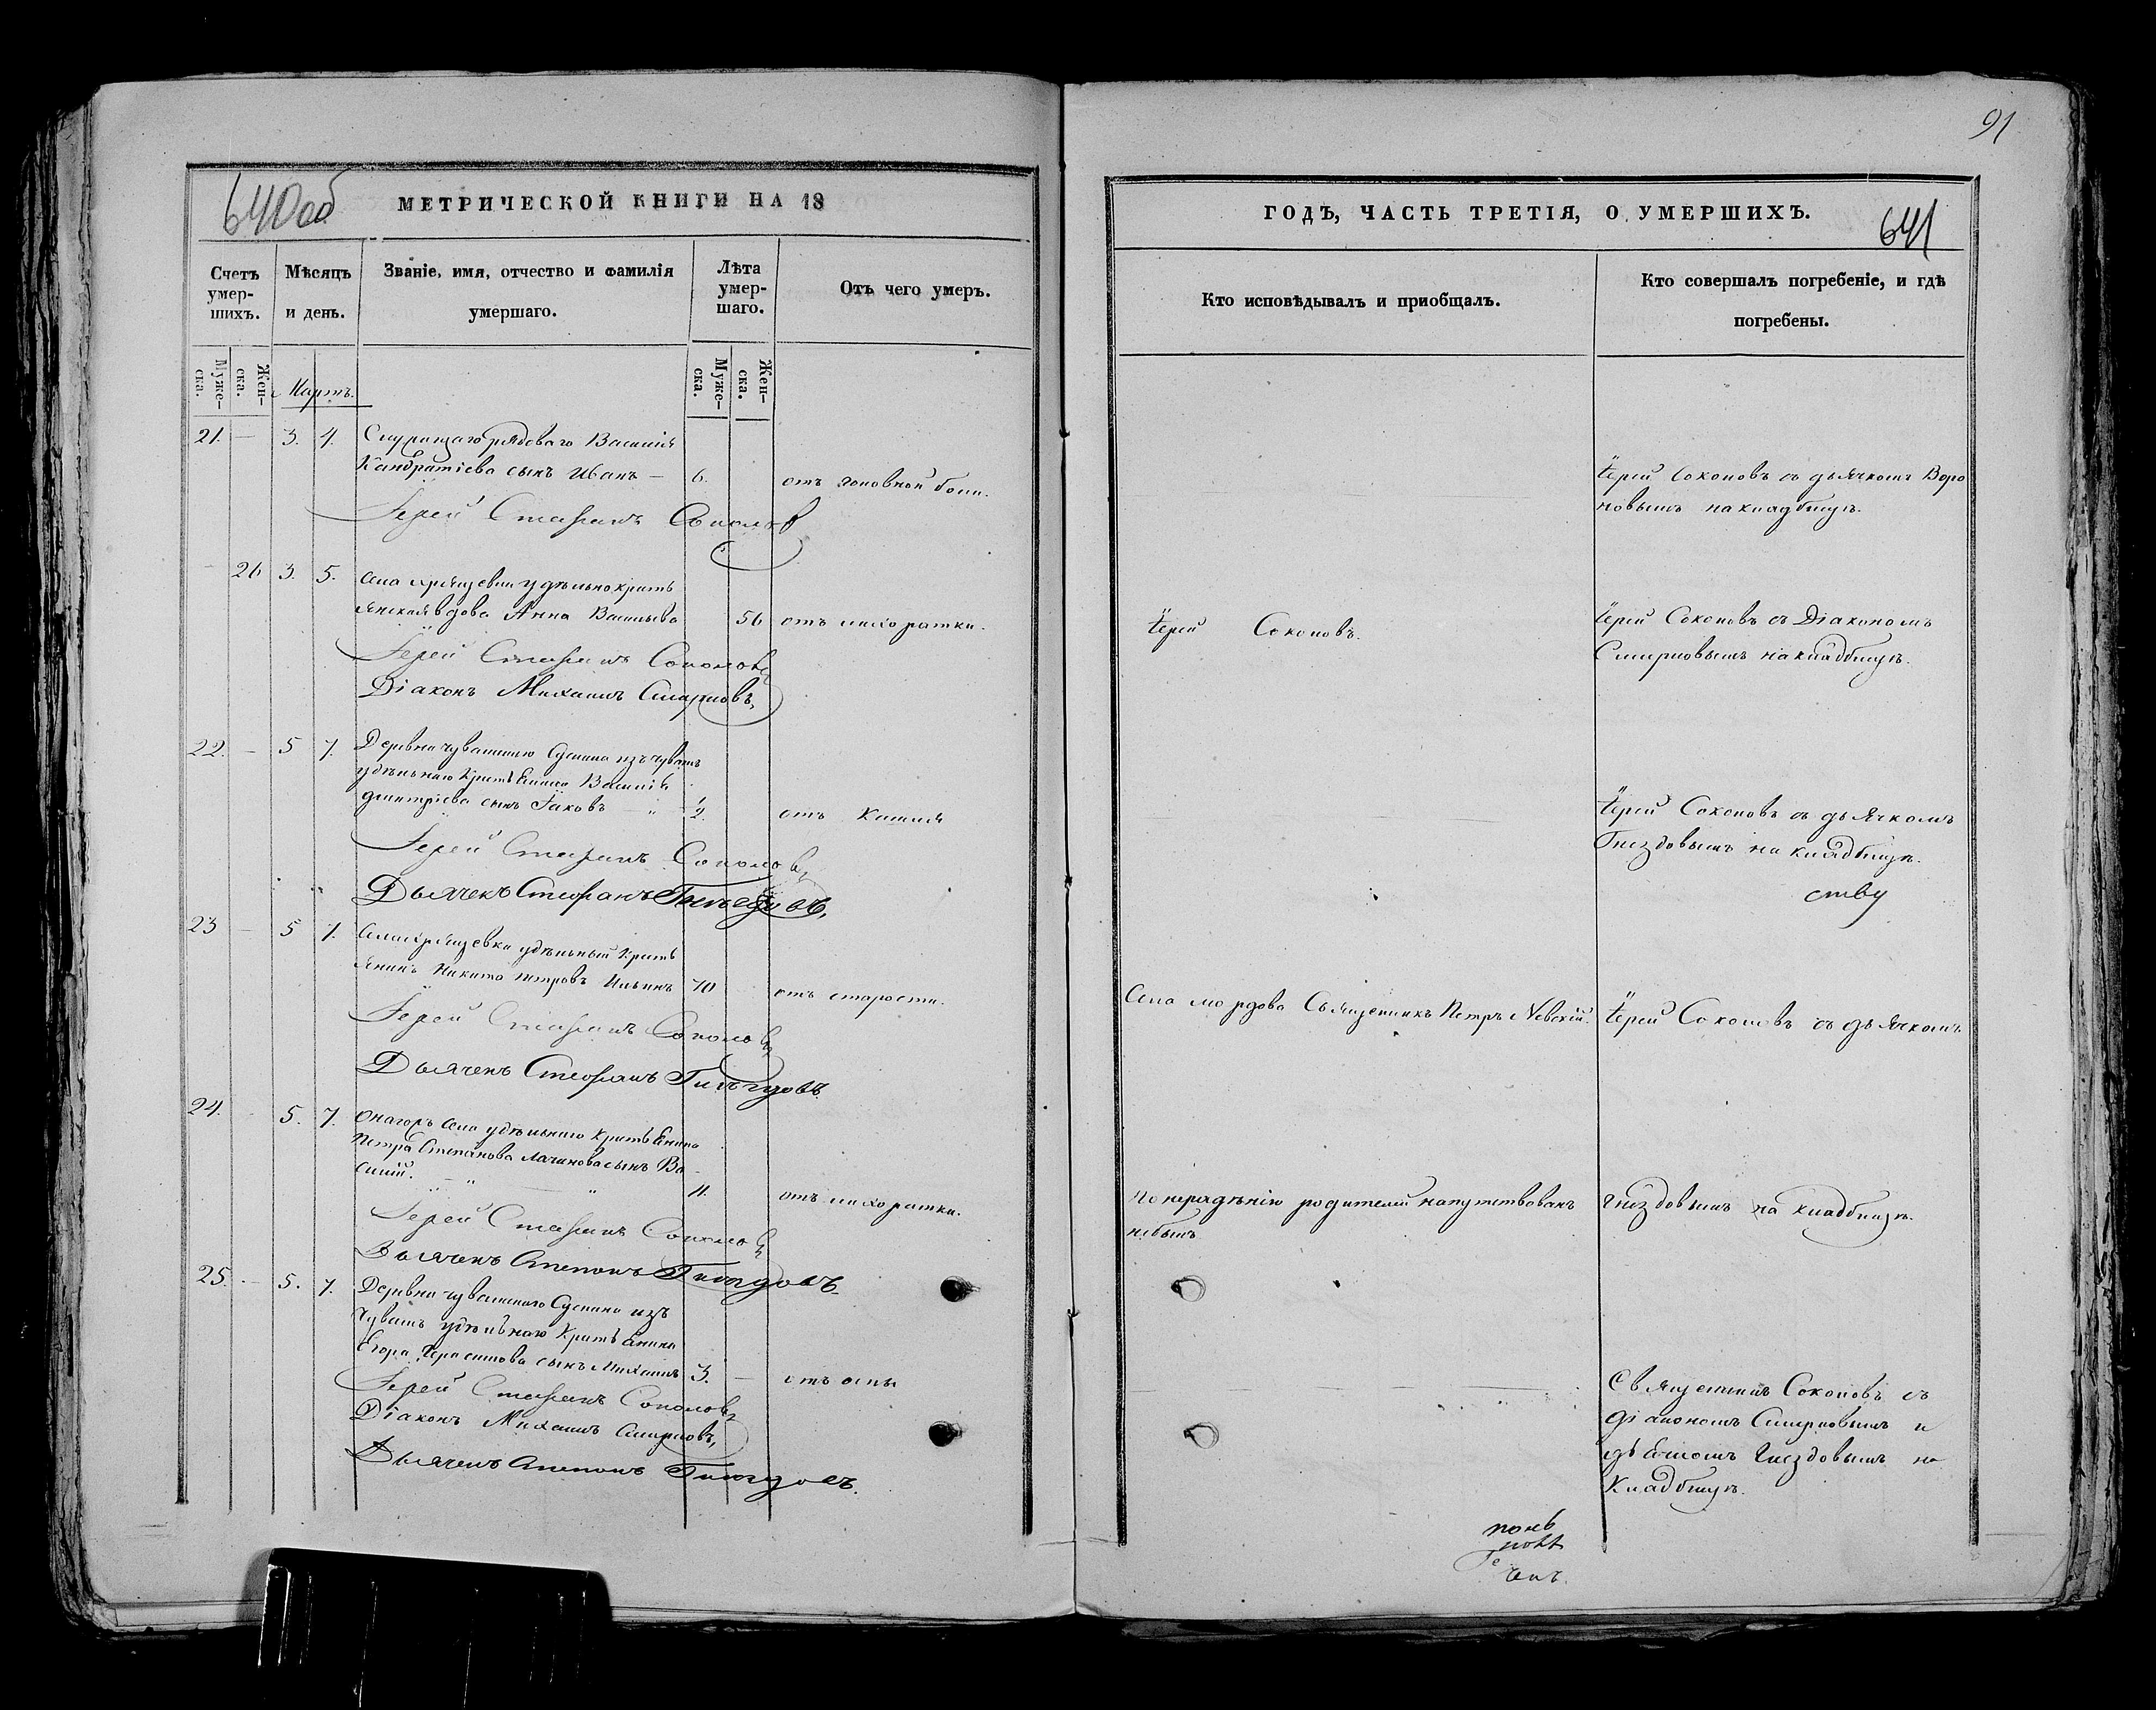 640об
МЕТРИЧЕСКОЙ КНИГИ НА 18
Счетъ умер-шихъ.
Мѣсяцъ и день.
Званіе, имя, отчество и фамилія умершаго.
Лѣта умер-шаго.
Отъ чего умеръ.
Муже-ска.
Жен-ска.
Мартъ.
Муже-ска.
Жен-ска.
21. — 3. 4. Служащаго рядоваго Василія
Кандратіева сынъ Иванъ — 6. отъ головной боли.
Іерей Стефанъ Соколовъ
26 3. 5. Села Хрящевки удѣльнокресть
янская вдова Анна Васильева 56 отъ лихоратки.
Іерей Стефанъ Соколовъ
Діаконъ Михаилъ Смирновъ,
22. — 5 7. Деревни чувашскаго Сускана изъ чувашъ
удѣльнаго крестьянина Василія
Дмитріева сынъ Іаковъ — „ ½. отъ кашля
Іерей Стефанъ Соколовъ
Дьячекъ Стефанъ Гнездовъ,
23 — 5 7. Села Хрящевки удѣльный кресть
янинъ Никита Петровъ Ильинъ 70 отъ старости.
Іерей Стефанъ Соколовъ
Дьячекъ Стефанъ Гнездовъ
24. 5. 7. Онагожъ села удѣльнаго крестьянина
Петра Степанова сынъ Ва
силій. — „ — „ 11. отъ лихоратки.
Іерей Стефанъ Соколовъ
Дьячекъ Степанъ Гнездовъ
25. — 5. 7. Деревни чувашскаго Сускана изъ
Чувашъ удѣльнаго крестьянина
Егора Герасимова сынъ Михаилъ 3. — отъ оспы
Іерей Стефанъ Соколовъ
Діаконъ Михаилъ Смирновъ,
Дьячекъ Степанъ Гнездовъ.
91
ГОДЪ, ЧАСТЬ ТРЕТІЯ, О УМЕРШИХЪ.
641
Кто исповѣдывалъ и приобщалъ.
Кто совершалъ погребеніе, и гдѣ погребены.
Іерей Соколовъ съ дьячкомъ Воро
новымъ на кладбищѣ.
Іерей Соколовъ.
Іерей Соколовъ съ Діакономъ
Смирновымъ на кладбищѣ.
Іерей Соколовъ съ дьячкомъ
Гнездовымъ на кладбищѣ.
ству
Села мордова Священникъ Петръ Невскій.
Іерей Соколовъ съ дьячкомъ
По нерадѣнію родителей напутствованъ
небылъ
Гнездовымъ на кладбищѣ.
Священникъ Соколовъ съ
діакономъ Смирновымъ и
дьячкомъ Гнездовымъ на
Кладбищѣ.